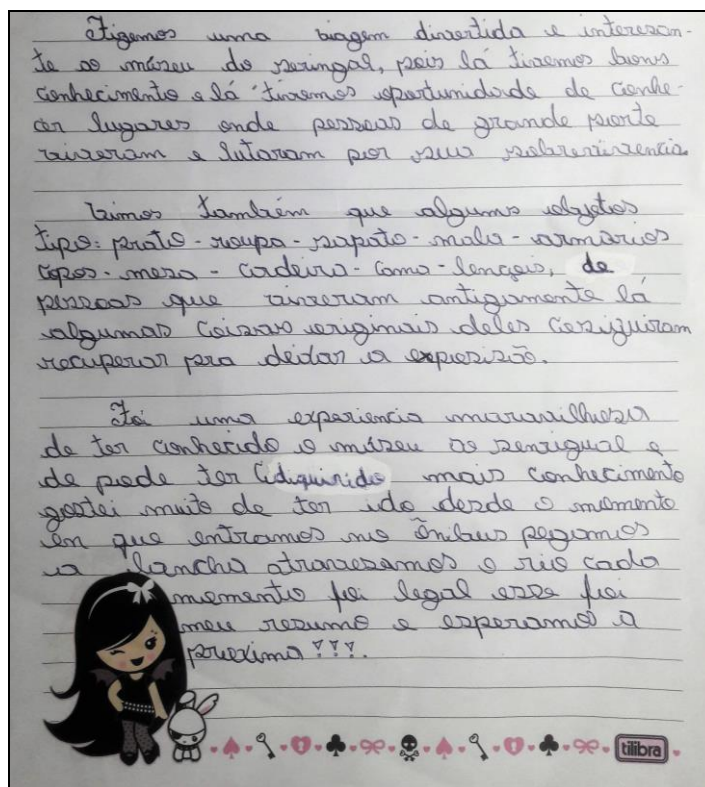 Fizemos uma biagem divertida e interesan-
te ao múseu do seringal, pois lá tivemos bons
conhecimento e lá tivemos oportunidade de conhe-
cer lugares onde pessoas de grande porte
viveram e lutaram por seus sobrevivencia.
Vimos também que alguns objetos
tipo: prato - roupa - sapato - mala - armários
copos - mesa - cadeira - cama - lençois, de
pessoas que viveram antigamente lá
algumas coisas originais deles conziguiram
recuperar pra deidar a exposizão.
Foi uma experiencia maravilhosa
de ter conhecido o múseu os senrigual e
de pode ter adiquirido mais conhecimento
gostei muito de ter ido desde o momento
em que entramos no ônibus pegamos
a lancha atravesamos o rio cada
momento foi legal esse foi
meu resumo e esperamos a
proxima !!!.
tilibra